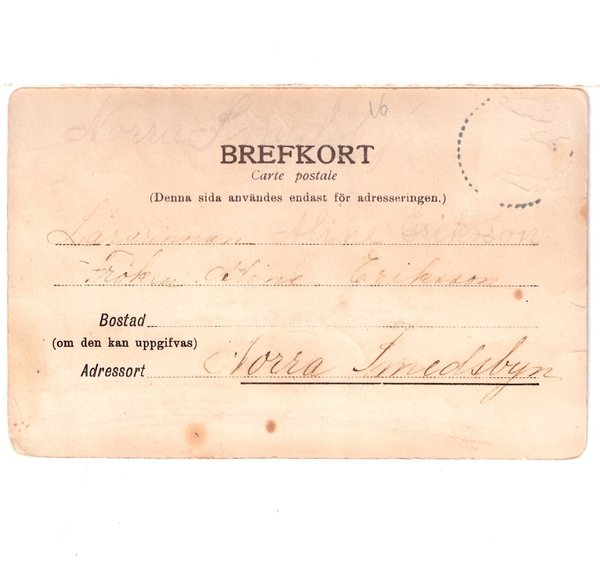 Norra
BREFKORT
Carte postale
(Denna sida användes endast för adresseringen.)
Lärarinnan Eriksson
Fröken Eriksson
Bostad
(om den kan uppgifvas)
Adressort Norra Smedsbyn